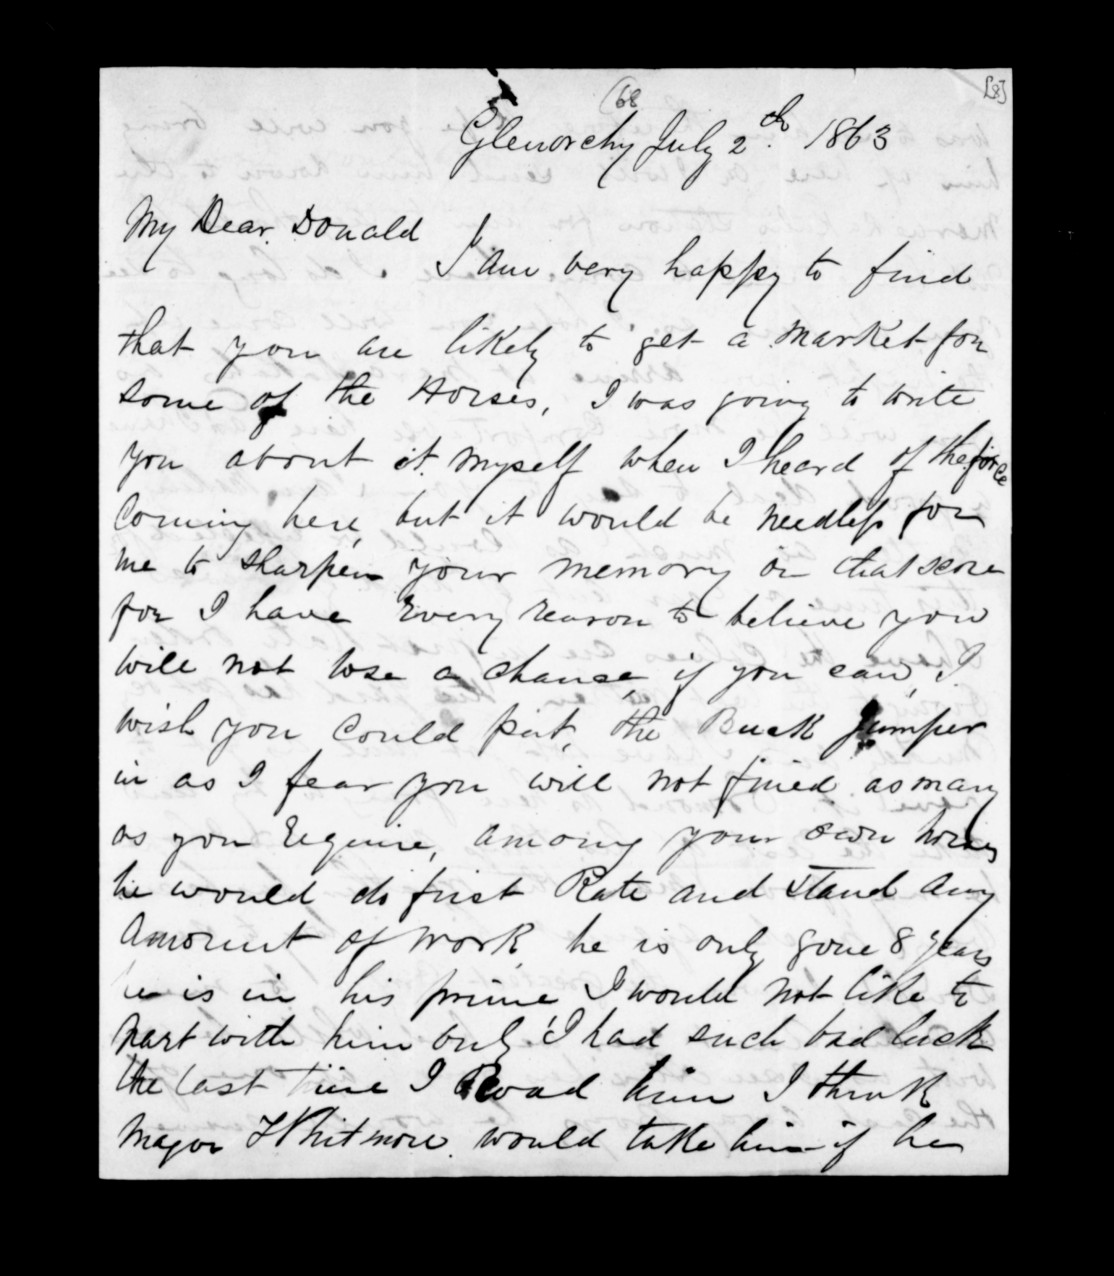 (68
[8]
Glenorchy July 2th. 1863
My Dear Donald
I am very happy to find
that you are likely to get a Market for
some of the Horses, I was going to write
you about it myself when I heard of the force
Coming here, but it would be needless for
me to sharpen your memory on that score
for I have Every reason to believe you
will not lose a chance if you can, I
wish you Could put, the Buck jumper
in as I fear you will not fined as many
as you Require, among your own horses
he would do first Rate and Stand Any
Amount of Work, he is only gone 8 years
he is in his prime I would Not like to
part with him only I had such bad luck
the last time I Road him I think
Major Whitmore would take him if he